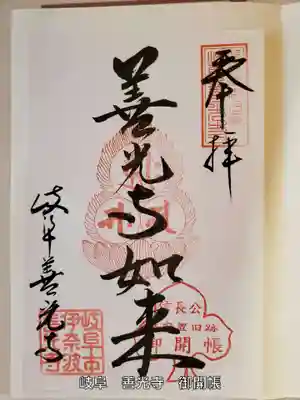 奉拝
善光寺如来
岐阜善光寺
長公
旧跡
御開帳
岐阜市
伊奈波
善光寺
岐阜　善光寺　御開帳